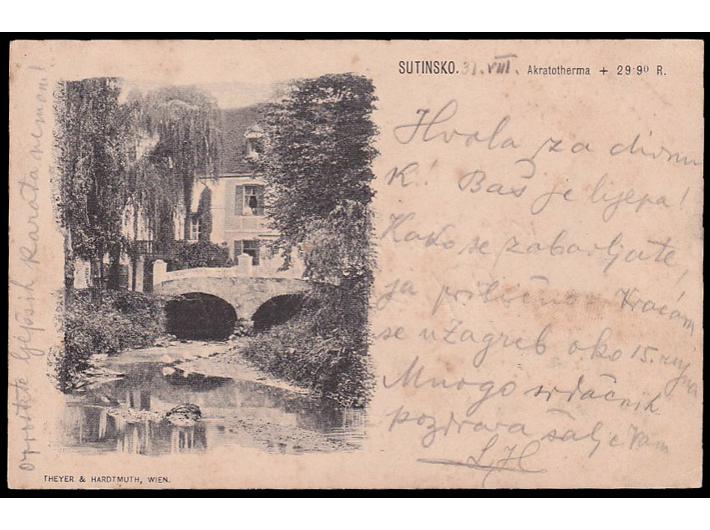 SUTINSKO. 31. VIII. Akratotherma + 29·9⁰ R.
Hvala za divnu
K! Baš je lijepa!
Kako se zabavljate,
ja prilično. Vraćam
se u Zagreb oko 15. rujna
Mnogo srdačnih
pozdrava šalje Vam
LH
oprostite ljepših karata nemam!
THEYER & HARDTMUTH, WIEN.